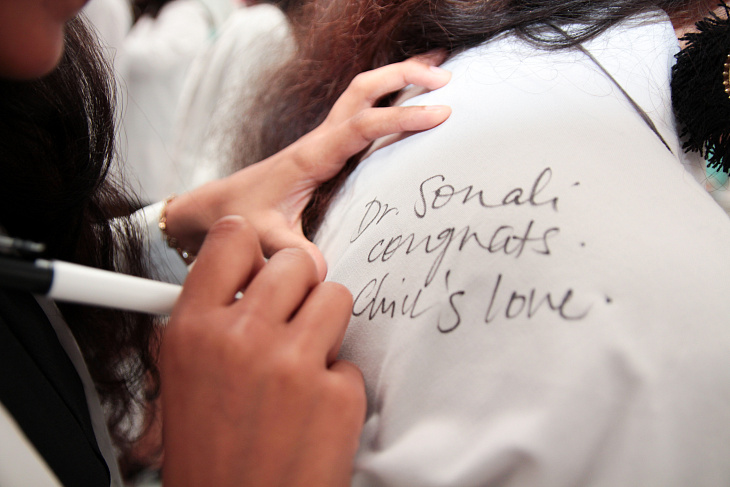 Dr. Sonali
congrats.
love.